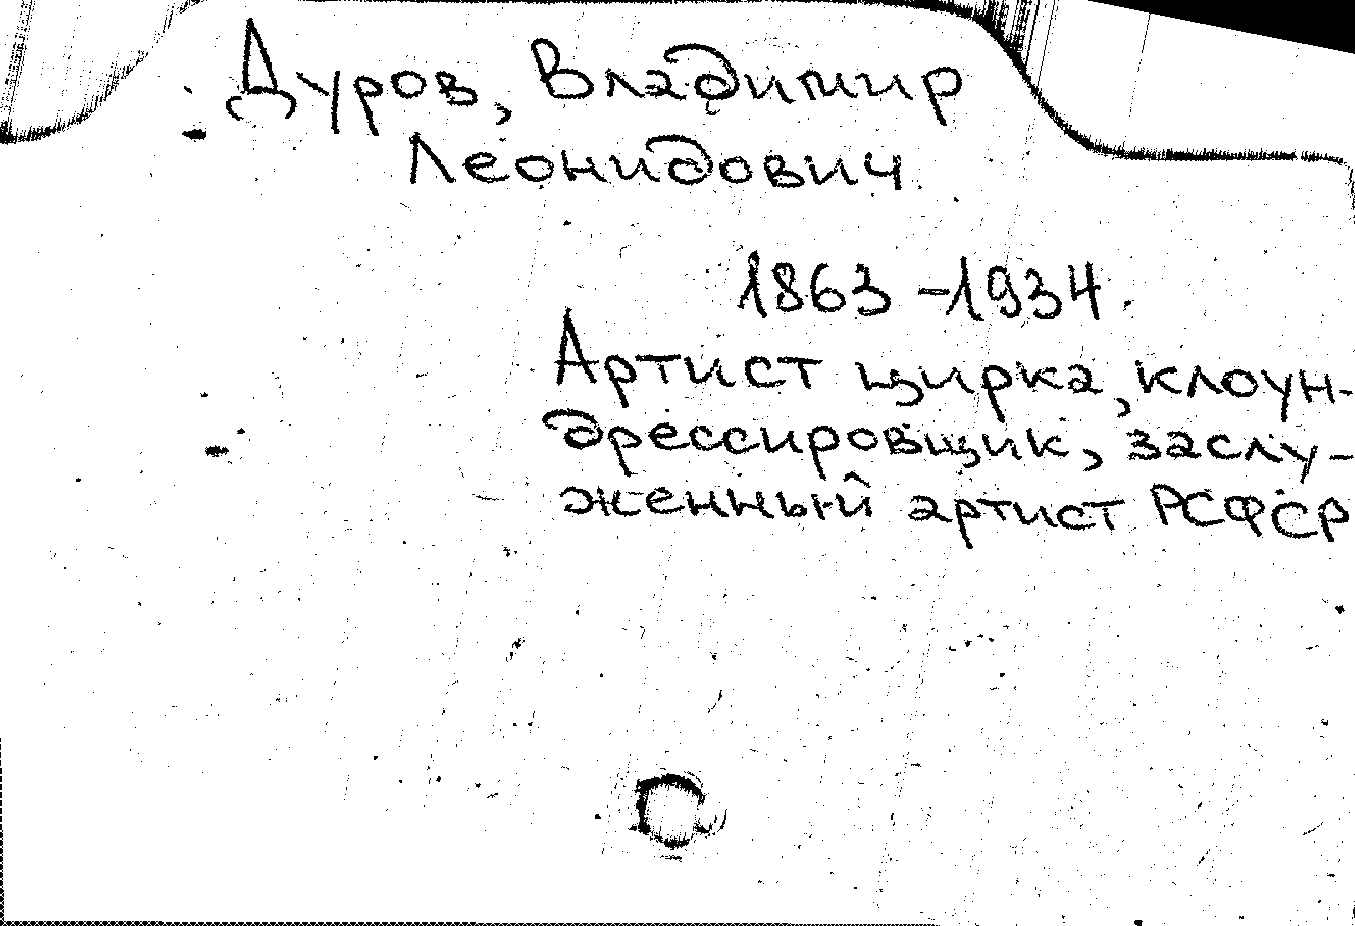 Дуров, Владимир
Леонидович
1863 - 1934.
Артист цирка, клоун-
дрессировщик, заслу-
женный артист РСФСР